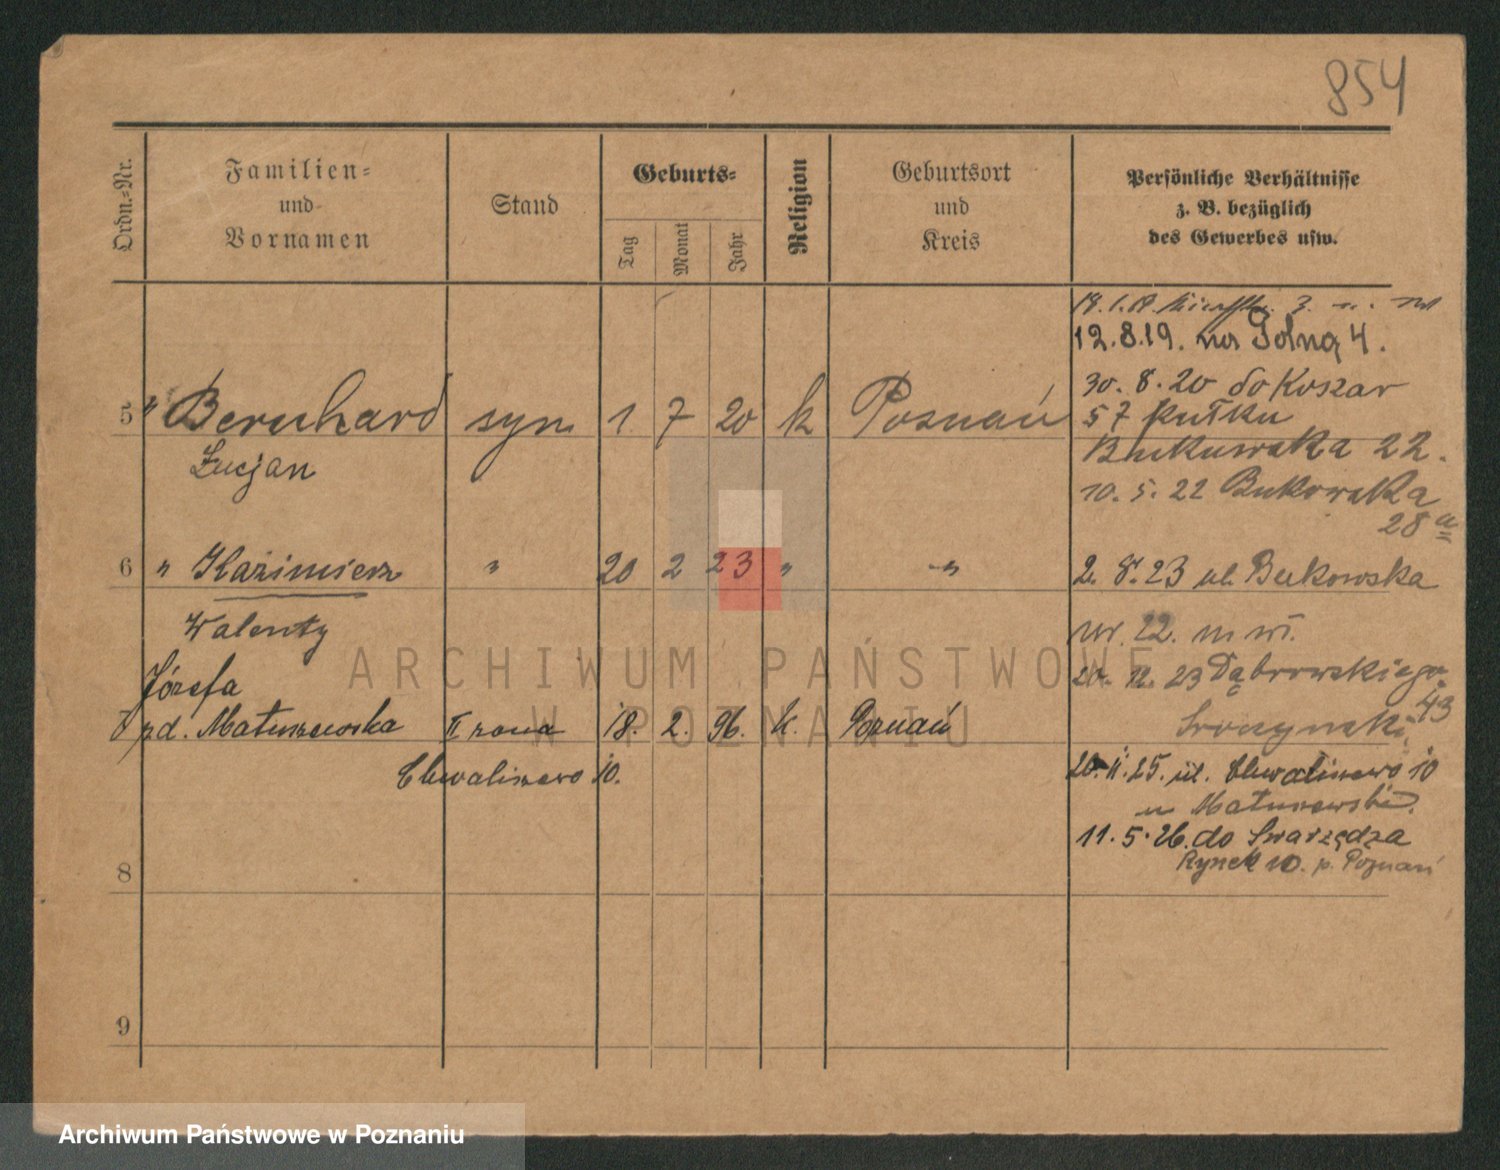 854
Ordn.=Nr.
Familien=
und
Vornamen
Stand
Geburts=
Tag
Monat
Jahr
Religion
Geburtsort
und
Kreis
Persönliche Verhältnisse
z. B. bezüglich
des Gewerbes usw.
12.8.19. na Polną 4.
30.8.20 do Koszar
5 " Bernhard syn 1 7 20 k Poznań 57 pułku
Łucjan
Bukowska 22.
10.5.22 Bukowska
28 a
6 " Kazimierz " 20 2 23 " -"- 2.8.23 ul. Bukowska
Walenty
nr. 22. m
Józefa
20. 12. 23 Dąbrowskiego
43
zd. Matuszewska II żona 18. 2. 96. k. Poznań
Chwaliszewo 10.
20.11.25. ul. Chwaliszewo 10
u Matuszewski
11.5.26. do Swarzędza
Rynek 10. p. Poznań
8
9
ARCHIWUM PAŃSTWOWE
W POZNANIU
Archiwum Państwowe w Poznaniu